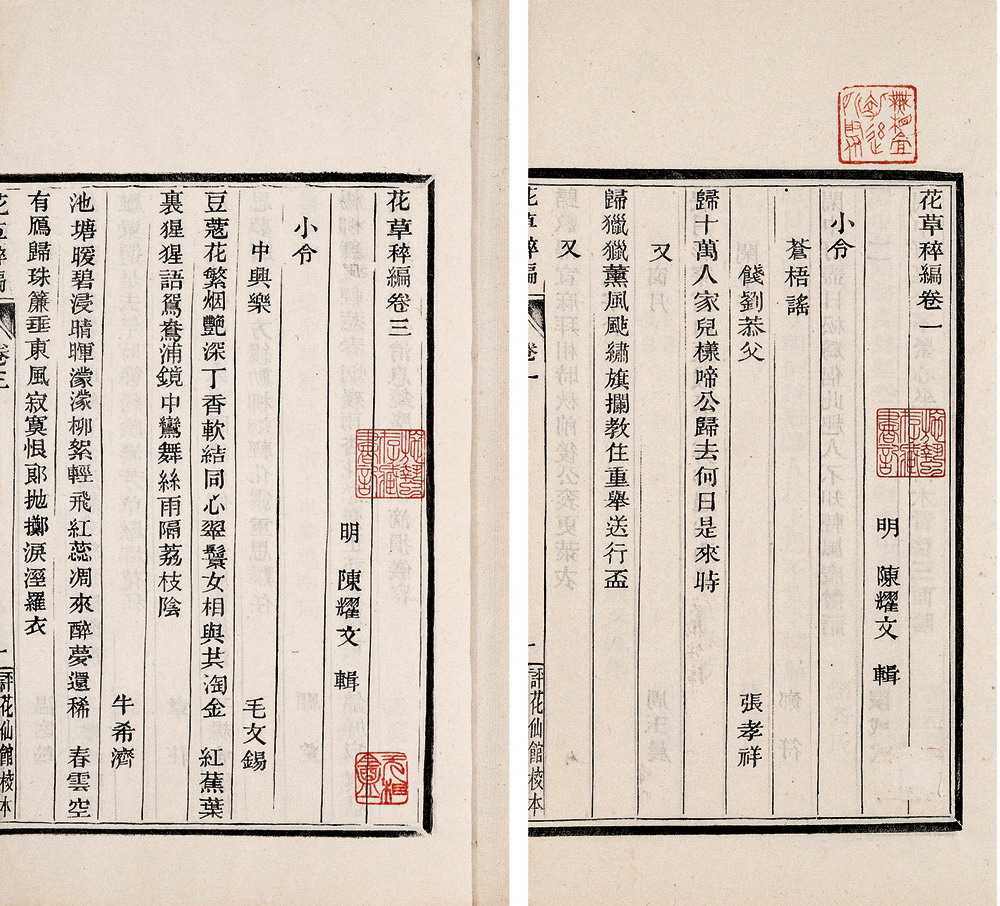 花草稡編卷一
明　陳耀文　輯
小令
蒼梧謠
餞劉恭父　張孝祥
歸十萬人家兒樣啼公歸去何日是來時
又
歸獵獵薰風颭繡旗攔教住重舉送行盃
又
花草稡編　卷一　一　評花仙館校本
花草稡編卷三
明　陳耀文　輯
小令
中興樂　毛文錫
豆蔻花繁烟艷深丁香軟結同心翠鬟女相與共淘金　紅蕉葉
裏猩猩語鴛鴦浦鏡中鸞舞絲雨隔荔枝陰
牛希濟
池塘暖碧浸晴暉濛濛柳絮輕飛紅蕊凋來醉夢還稀　春雲空
有鴈歸珠簾垂東風寂寞恨郎抛擲淚溼羅衣
花草稡編　卷三　一　評花仙館校本